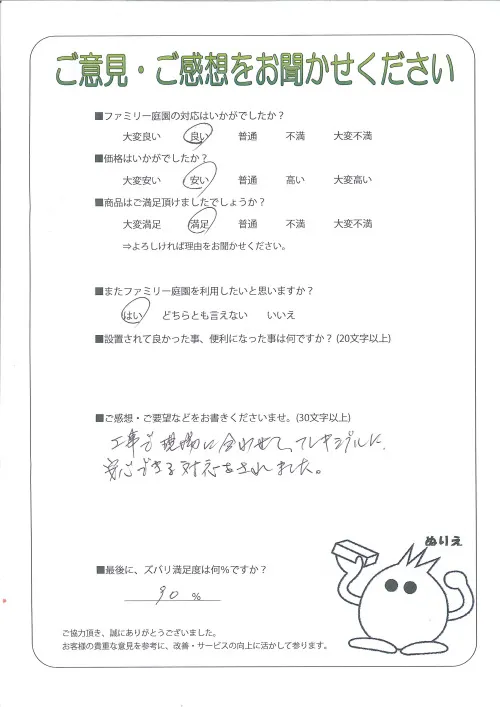 ご意見・ご感想をお聞かせください
■ファミリー庭園の対応はいかがでしたか？
大変良い 良い 普通 不満 大変不満
■価格はいかがでしたか？
大変安い 安い 普通 高い 大変高い
■商品はご満足頂けましたでしょうか？
大変満足 満足 普通 不満 大変不満
⇒よろしければ理由をお聞かせください。
■またファミリー庭園を利用したいと思いますか？
はい どちらとも言えない いいえ
■設置されて良かった事、便利になった事は何ですか？(20文字以上)
■ご感想・ご要望などをお書きくださいませ。(30文字以上)
工事も現場に合わせて、フレキシブルに、
安心できる対応をされました。
ぬりえ
■最後に、ズバリ満足度は何%ですか？
90 %
ご協力頂き、誠にありがとうございました。
お客様の貴重な意見を参考に、改善・サービスの向上に活かして参ります。